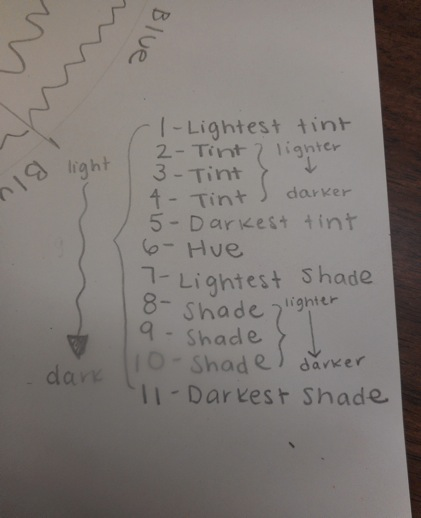 Blue
Blu
light
dark
1 - Lightest tint
2 - Tint
3 - Tint
4 - Tint
lighter
darker
5 - Darkest tint
6 - Hue
7 - Lightest Shade
8 - Shade
9 - Shade
10 - Shade
lighter
darker
11 - Darkest Shade